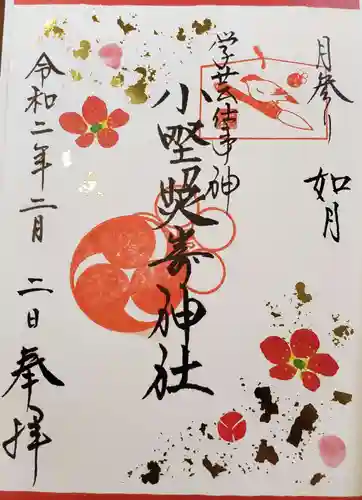 月参り
如月
学芸仕事神
小野照崎神社
令和二年二月二日
奉拝